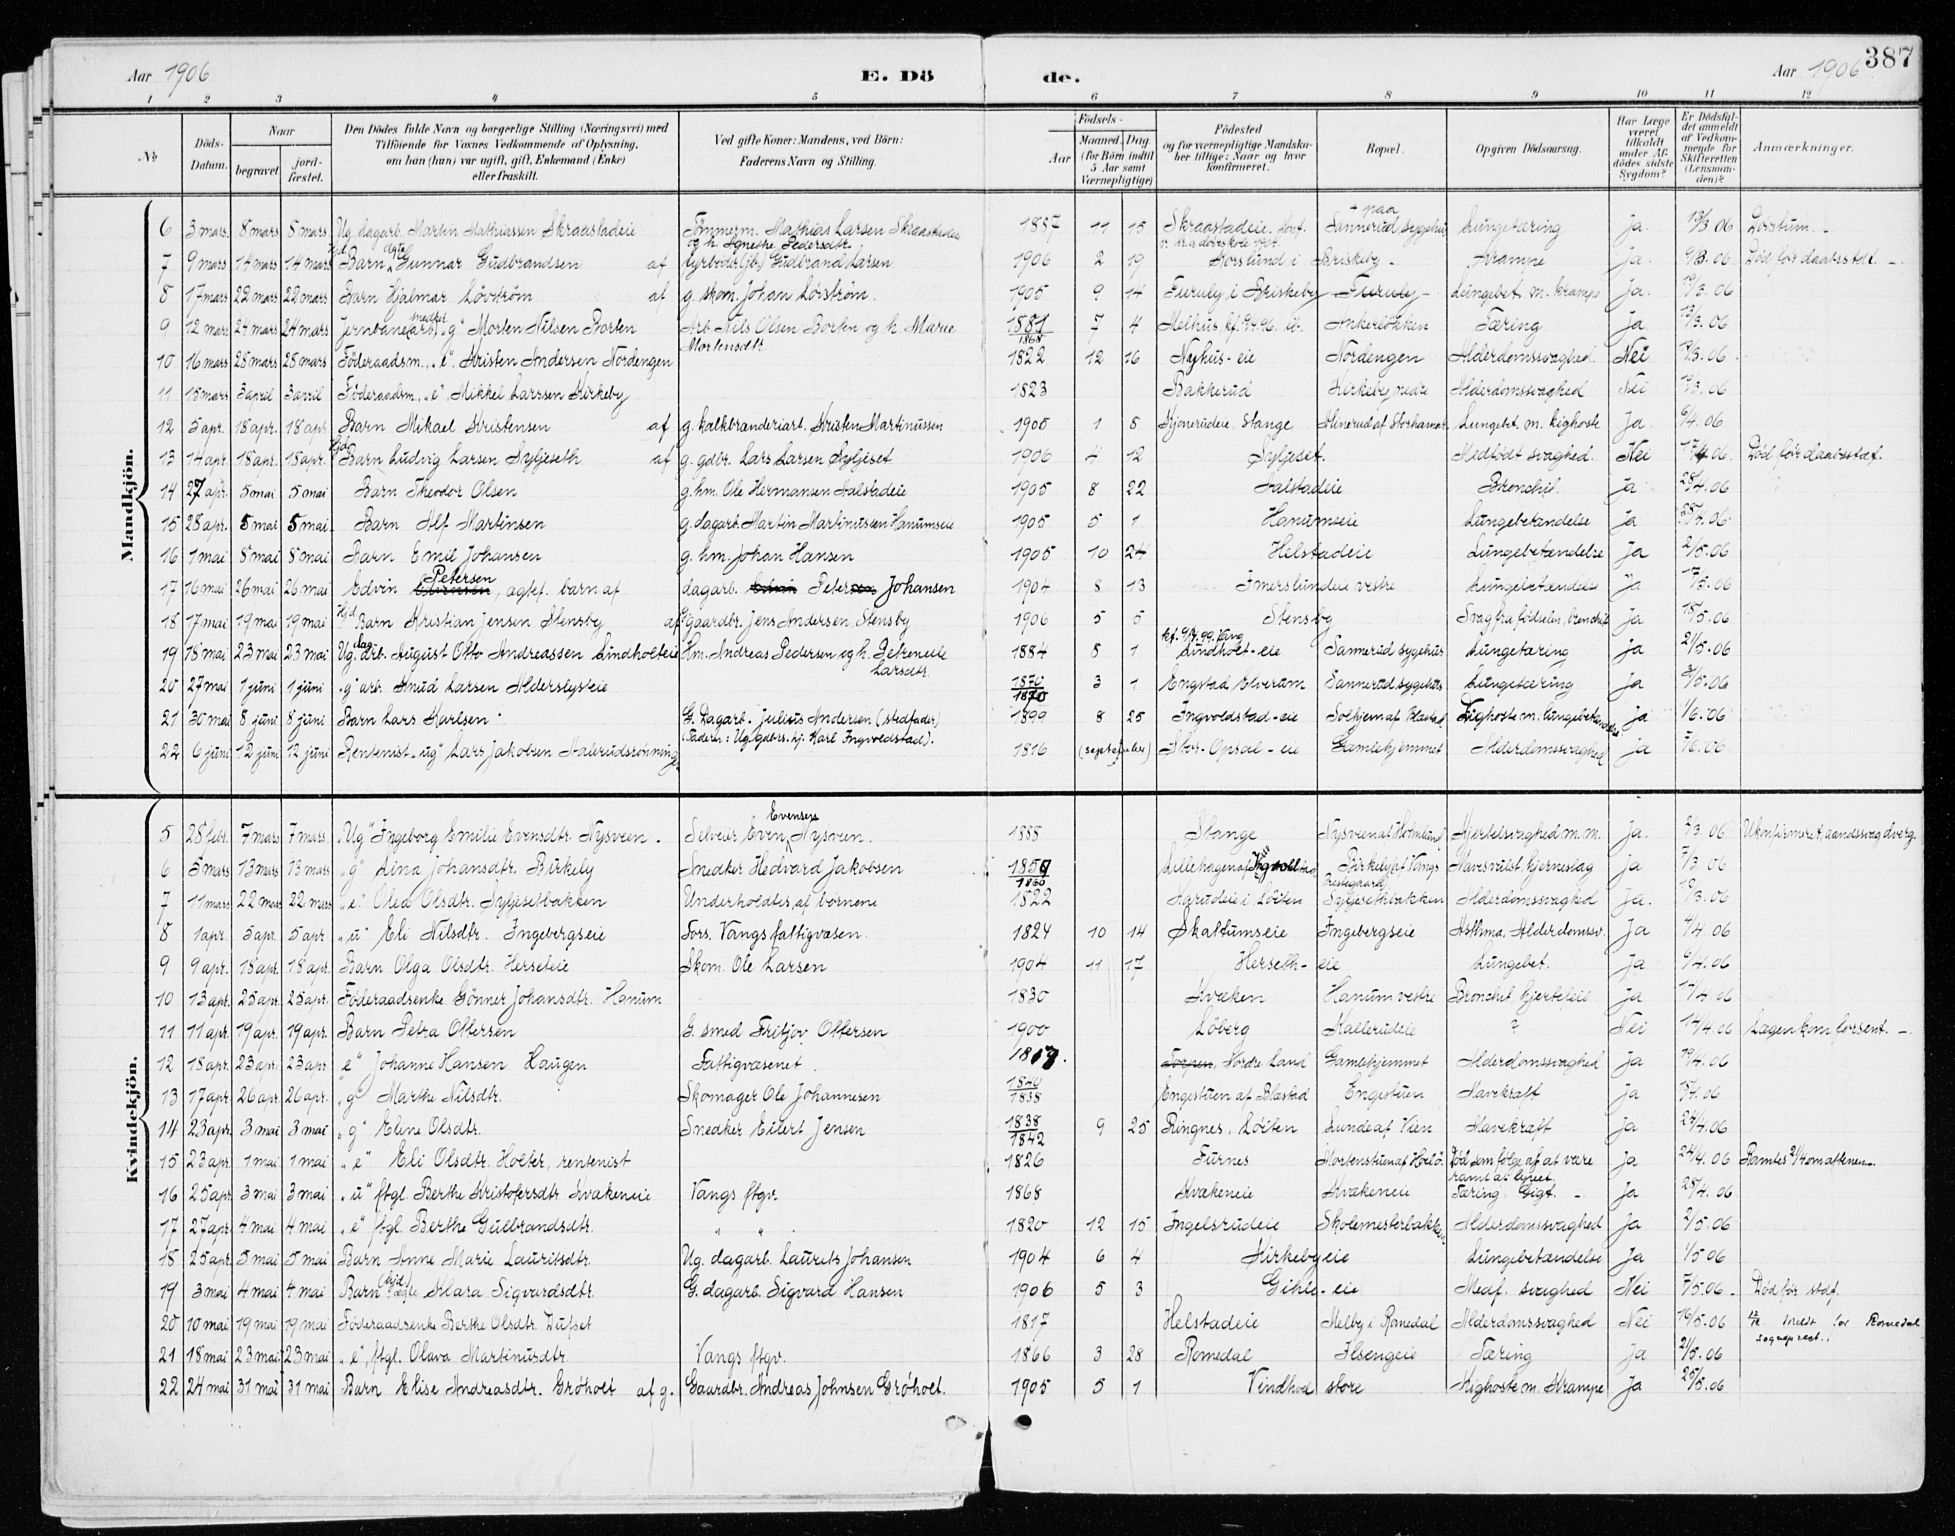 Aar 1906
E. Dö
de.
Aar 1906
387
1 2 3 4 5 6 7 8 9 10 11 12
No
Döds-Datum.
Naar
begravet
jord-fæstet.
Den Dödes fulde Navn og borgerlige Stilling (Næringsvei) med
Tilföiende for Voxnes Vedkommende af Oplysning,
om han (hun) var ugift, gift, Enkemand (Enke)
eller fraskilt.
Ved gifte Koner: Mandens, ved Börn:
Faderens Navn og Stilling.
Födsels-
Aar
Maaned.
Dag
(for Börn indtil
5 Aar samt
Værnepligtige)
Födested
og for værnepligtige Mandska-
ber tillige: Naar og hvor
konfirmeret.
Bopæl.
Opgiven Dödsaarsag.
Har Læge
været
tilkaldt
under Af-
dödes sidste
Sygdom?
Er Dödsfal-
det anmeldt
af Vedkom-
mende for
Skifteretten
(Lensman-
den)?
Anmærkninger.
Mandkjön.
6 3 mars 8 mars 8 mars Ug. dagarb. Martin Mathiassen Skraastadeie Tömmerm. Mathias Larsen Skraastadeie og h. Agnethe Pedersdtr. 1887 11 15 Skraastadeie. + paa Sannerud sygehus Lungetæring Ja 13/3 06
7 9 mars 14 mars 14 mars Barn Gunnar Gudbrandsen af fyrböder (jb.) Gudbrand Larsen 1906 2 19 Gorslund i Briskeby Krampe Ja 9/3. 06. Död för daabsstdf.
8 17 mars 22 mars 22 mars Barn Hjalmar Lövström af g. skom. Johan Lövström. 1905 9 14 Furuly i Briskeby Furuly Lungebet. m. krampe Ja. 19/3. 06
9 12 mars 24 mars 24 mars Jernbanearb. "g" Morten Nilsen Borten Arb. Nils Olsen Borten og h. Marie Mortensdtr. 1881 7 4 Melhus Ankerlökken Tæring Ja 13/3. 06
10 16 mars 28 mars 28 mars Föderaadsm., "e". Kristen Andersen Nordengen 1822 12 16 Nyhus-eie Nordengen Alderdomssvaghed Nei 19/3. 06
11 18 mars 3 april 3 april Föderaadsm., "e". Mikkel Larssen Kirkeby 1823 Bakkerud Kirkeby nedre Alderdomssvaghed Nei 19/3. 06
12 5 apr. 18 apr. 18 apr. Barn Mikael Kristensen af g. kalkbrænderiarb. Kristen Martinussen 1905 1 8 Stange Lungebet. m. kighoste Ja 6/4. 06
13 14 apr. 18 apr. 18 apr. Barn Ludvig Larsen Syljeseth af g. gdbr. Lars Larsen Syljeset 1906 4 12 Syljeset. Medfödt svaghed Nei 17/4 06. Död för daabsstdf.
14 27 apr. 5 mai 5 mai Barn Theodor Olsen g. hm. Ole Hermansen Aalstadeie 1905 8 22 Aalstadeie Bronchit. ja 28/4. 06
15 28 apr. 5 mai 5 mai Barn Alf Martinsen g. dagarb. Martin Martinussen Hanumseie 1905 5 1 Hanumseie Lungebetændelse Ja 28/4. 06
16 1 mai 8 mai 8 mai Barn Emil Johansen g. hm. Johan Hansen 1905 10 24 Helstadeie Lungebetændelse Ja 2/5. 06
17 16 mai 26 mai 26 mai Edvin Petersen, agtef. barn af dagarb. Edvin Petersen Johansen 1904 8 13 Imerslundeie vestre Lungebetændelse Ja 17/5. 06
18 17 mai 19 mai 19 mai Barn Kristian Jensen Stensby af Gaardbr. Jens Andersen Stensby 1906 5 5 Stensby Svag fra födselen, bronchit Ja 18/5. 06
19 18 mai 23 mai 23 mai Ug. dagarb. August Otto Andreassen Lindholteie Hm. Andreas Pedersen og h. Petrenelle Larsdtr. 1884 8 1 Lindholt-eie Sannerud sygehus Lungetæring ja 21/5. 06
20 27 mai 1 juni 1 juni "g" arb. Knud Larsen Alderslysteie 1870 3 1 Engstad Elverum Sannerud sygehus Lungetæring Ja
21 30 mai 8 juni 8 juni Barn Lars Karlsen. G. Dagarb. Julius Andersen (stedfader) (Faderen: Ug. gdbrs. hj. Karl Ingvoldstad). 1899 8 25 Ingvoldstad-eie Solhjem af Blæstad Kighoste m. lungebetændelse ja 1/6. 06
22 6 juni 12 juni 12 juni Rentenist "ug" Lars Jakobsen 1816 Stor-Opsal-eie Gamlehjemmet Alderdomssvaghed ja 7/6. 06
Kvindekjön.
5 28 febr. 7 mars 7 mars "Ug" Ingeborg Emilie Evensdtr. Nysveen. Selveier Even Evensen Nysveen. 1888 Stange Nysveen af Holmlund Hjertesvaghed m. m. ja. 2/3. 06 Ukonfirmeret, aandssvag dverg.
6 5 mars 13 mars 13 mars "g" Lina Johansdtr. Birkely Snedker Hedvard Jakobsen 1859 1860 Birkely af Vangs Prestegaard Mavesvulst hjerneslag Ja 7/3 06
7 11 mars 22 mars 22 mars "e" Olea Olsdtr. Syljesetbakken Underholdtes af börnene 1822 i Löiten Syljesethbakken Alderdomssvaghed Ja. 12/3. 06
8 1 apr. 5 apr. 5 apr "u" Eli Nilsdtr. Ingebergseie Fors. Vangs fattigvæsen 1824 10 14 Skattumseie Ingebergseie Asthma, Alderdomssv. Ja 4/4. 06
9 9 apr. 18 apr. 18 apr. Barn Olga Olsdtr. Herseteie Skom. Ole Larsen 1904 11 17 Herseth-eie Lungebet. Ja 9/4. 06
10 13 apr. 25 apr. 25 apr. Föderaadsenke Gönner Johansdtr. Hanum 1830 Kvæken Hanum vestre Bronchit hjertefeil Ja 17/4 06
11 11 apr. 19 apr. 19 apr. Barn Petra Ottersen G. smed Fritjov Ottersen 1900 Löberg Kallerudeie ? Nei 17/4. 06 Lægen kom forsent.
12 18 apr. 23 apr. 23 apr "e" Johanne Hansen Haugen Fattigvæsenet 1817. Torpen, Nordre Land Gamlehjemmet Alderdomssvaghed Ja 19/4. 06
13 17 apr. 26 apr. 26 apr. "g" Marthe Nilsdtr. Skomager Ole Johannesen 1840 1838 Engestuen af Blæstad Engestuen Mavekræft Ja 18/4. 06
14 23 apr. 3 mai 3 mai "g" Eline Olsdtr. Snedker Eilert Jensen 1838 1842 9 25 Ringnes, Löiten Lunde af Vien Mavekræft ja 24/4. 06
15 23 apr 1 mai 1 mai "e" Eli Olsdtr. Holter, rentenist 1826 Furnes Död som fölge af at være ramt af lynet. ja 24/4. 06
16 25 apr 3 mai 3 mai "u" ftgl. Berthe Kristofersdtr. Kvækeneie Vangs ftgv. 1868 Kvækeneie Kvækeneie Tæring, Gigt. Ja 28/4. 06
17 27 apr. 4 mai 4 mai "e" ftgl. Berthe Gulbrandsdtr. " " 1820 12 15 Ingelsrudeie Skolemesterbakken Alderdomssvaghed Ja 2/5. 06
18 25 apr. 5 mai 5 mai Barn Anne Marie Lauritsdtr. Ug. dagarb. Laurits Johansen 1904 6 4 Kirkebyeie Lungebetændelse Ja 1/5 06
19 3 mai 4 mai 4 mai Barn Klara Sigvardsdtr. G. dagarb. Sigvard Hansen 1906 5 3 Gihle-eie Medf. svaghed Nei 7/5. 06. Död för stdf.
20 10 mai 19 mai 19 mai Föderaadsenke Berthe Olsdtr. Dufset 1817 Helstadeie Melby i Romedal Alderdomssvaghed Nei 16/5. 06 for Romedal sogneprest.
21 18 mai 23 mai 23 mai "e", ftgl. Olava Martinusdtr. Vangs ftgv. 1866 3 28 Romedal Ilsengeie Tæring Ja 21/5. 06
22 24 mai 31 mai 31 mai Barn Elise Andreasdtr. Gröholt af g. Gaardbr. Andreas Johnsen Gröholt. 1905 5 1 Vindhol store Kighoste m. Krampe Ja 25/5. 06